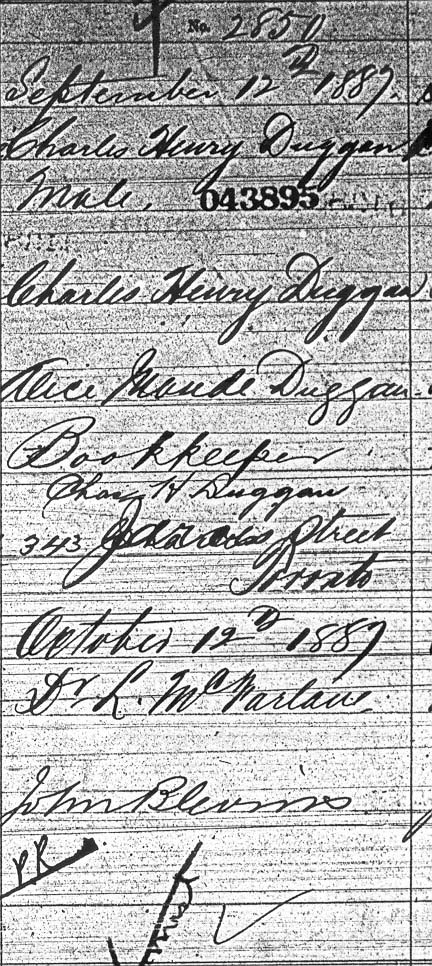 No. 2850
September 12th 1887.
Charles Henry Duggan
Male. 043895
Charles Henry Duggan
Alice Maude Duggan
Bookkeeper
Chas H Duggan
343 Street
Toronto
October 12th 1887
Dr L. McFarlane
John Blevins
PR